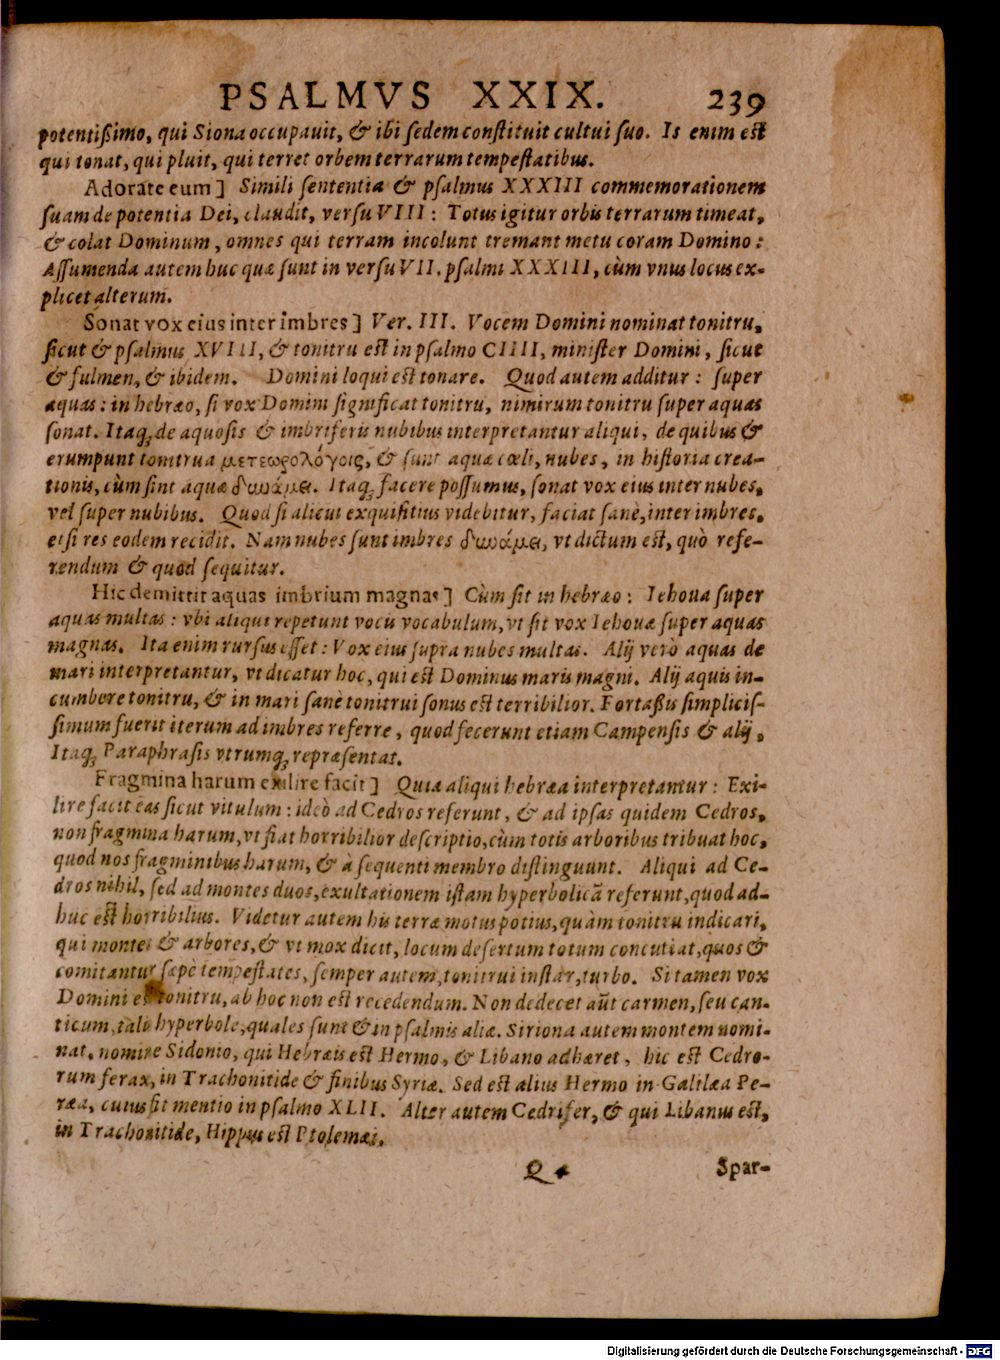 PSALMVS XXIX. 239
potentißimo, qui Siona occupauit, & ibi sedem constituit cultui suo. Is enim est
qui tonat, qui pluit, qui terret orbem terrarum tempestatibus.
Adorate eum] Simili sententia & psalmus XXXIII commemorationem
suam de potentia Dei, claudit, versu VIII: Totus igitur orbis terrarum timeat,
& colat Dominum, omnes qui terram incolunt tremant metu coram Domino:
Assumenda autem huc quæ sunt in versu VII. psalmi XXXIII, cùm vnus locus ex-
plicet alterum.
Sonat vox eius inter imbres] Ver. III. Vocem Domini nominat tonitru,
sicut & psalmus XVIII, & tonitru est in psalmo CIIII, minister Domini, sicut
& fulmen, & ibidem. Domini loqui est tonare. Quod autem additur: super
aquas: in hebræo, si vox Domini significat tonitru, nimirum tonitru super aquas
sonat. Itaq; de aquosis & imbriferis nubibus interpretantur aliqui, de quibus &
erumpunt tonitrua μετεωρολόγοις, & sunt aquæ cœli, nubes, in historia crea-
tionis, cùm sint aquæ δυνάμει. Itaq; facere possumus, sonat vox eius inter nubes,
vel super nubibus. Quod si alicui exquisitius videbitur, faciat sanè, inter imbres,
etsi res eodem recidit. Nam nubes sunt imbres δυνάμει, vt dictum est, quò refe-
rendum & quod sequitur.
Hic demittit aquas imbrium magnas] Cùm sit in hebræo: Iehoua super
aquas multas: vbi aliqui repetunt vocis vocabulum, vt sit vox Iehouæ super aquas
magnas. Ita enim rursus esset: Vox eius supra nubes multas. Alij verò aquas de
mari interpretantur, vt dicatur hoc, qui est Dominus maris magni. Alij aquis in-
cumbere tonitru, & in mari sanè tonitrui sonus est terribilior. Fortaßis simplicis-
simum fuerit iterum ad imbres referre, quod fecerunt etiam Campensis & alij.
Itaq; Paraphrasis vtrumq; repræsentat.
Fragmina harum exilire facit] Quia aliqui hebræa interpretantur: Exi-
lire facit eas sicut vitulum: ideò ad Cedros referunt, & ad ipsas quidem Cedros,
non fragmina harum, vt fiat horribilior descriptio, cùm totis arboribus tribuat hoc,
quod nos fragminibus harum, & à sequenti membro distinguunt. Aliqui ad Ce-
dros nihil, sed ad montes duos, exultationem istam hyperbolicã referunt, quod ad-
huc est horribilius. Videtur autem his terræ motus potius, quàm tonitru indicari,
qui montes & arbores, & vt mox dicit, locum desertum totum concutiat, quos &
comitantur sæpè tempestates, semper autem, tonitrui instar, turbo. Si tamen vox
Domini est tonitru, ab hoc non est recedendum. Non dedecet aũt carmen, seu can-
ticum, talis hyperbole, quales sunt & in psalmis aliæ. Siriona autem montem nomi-
nat, nomine Sidonio, qui Hebræis est Hermo, & Libano adhæret, hic est Cedro-
rum ferax, in Trachonitide & finibus Syriæ. Sed est alius Hermo in Galilæa Pe-
ræa, cuius fit mentio in psalmo XLII. Alter autem Cedrifer, & qui Libanus est,
in Trachonitide, Hippus est Ptolemæi.
Q Spar-
Digitalisierung gefördert durch die Deutsche Forschungsgemeinschaft - DFG